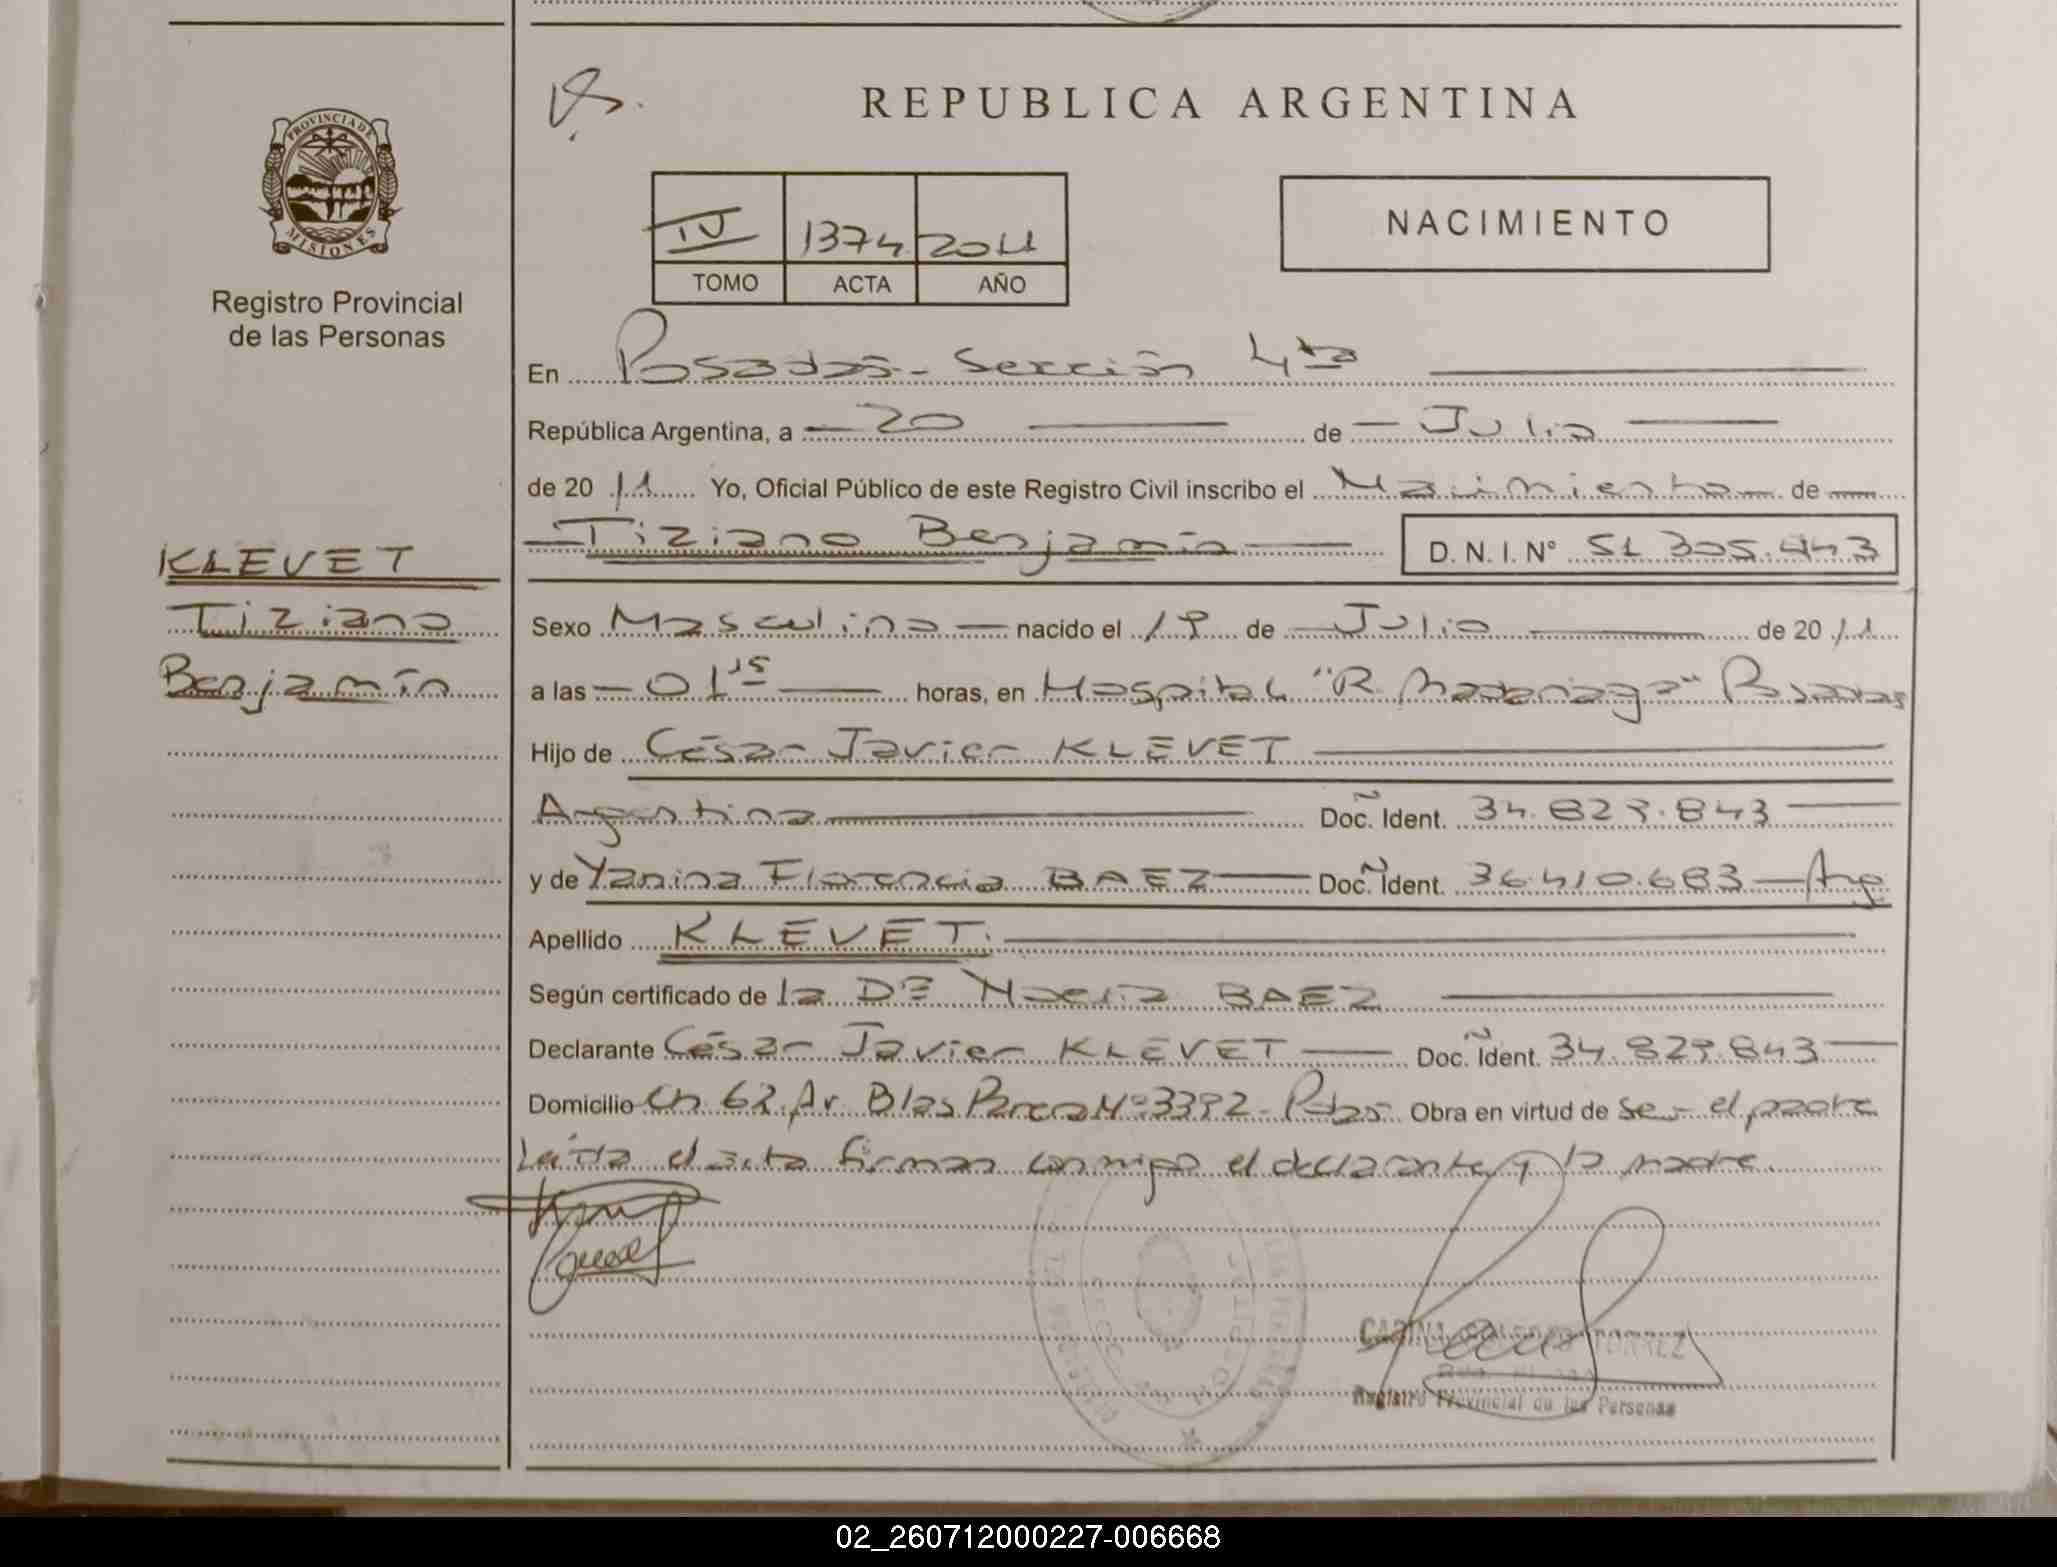 REPUBLICA ARGENTINA
PROVINCIA DE
MISIONES
Registro Provincial
de las Personas
IV 1374 2011
TOMO ACTA AÑO
NACIMIENTO
En Posadas - Sección 4ta
República Argentina, a 20 de Julio
de 20 11 Yo, Oficial Público de este Registro Civil inscribo el Nacimiento de
Tiziano Benjamín D. N. I. Nº 51.305.443
KLEVET
Tiziano
Benjamín
Sexo Masculino nacido el 19 de Julio de 20 11
a las 01 15 horas, en Hospital "R. Madariaga" Posadas
Hijo de César Javier KLEVET
Argentina Doc. Ident. 34.829.843
y de Yanina Florencia BAEZ Doc. Ident. 36.410.683 - Arg
Apellido KLEVET
Según certificado de la Dra BAEZ
Declarante César Javier KLEVET Doc. Ident. 34.829.843
Domicilio Ch 62 Av Blas Parera Nº 3392 - Pdas Obra en virtud de ser el padre
Leída el acta firman conmigo el declarante y la madre.
TORREZ
Registro Provincial de las Personas
02_260712000227-006668